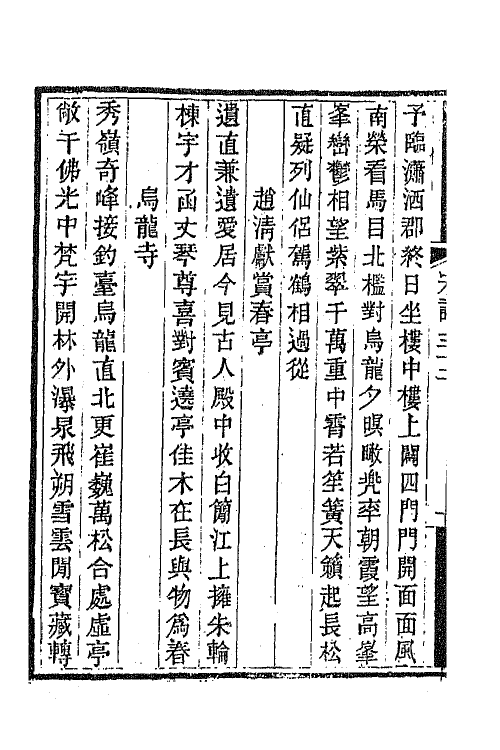 予臨瀟洒郡終日坐樓中樓上闢四門門開面面風
南榮看馬目北檻對烏龍夕暝瞰兠率朝霞望高峯
峯巒鬱相望紫翠千萬重中霄若笙簧天籟起長松
直疑列仙侶駕鶴相過從
趙清獻賞春亭
遺直兼遺愛居今見古人殿中收白簡江上擁朱輪
棟宇才函丈琴尊喜對賓遶亭佳木在長與物爲春
烏龍寺
秀嶺奇峰接釣臺烏龍直北更崔巍萬松合處虛亭
敞千佛光中梵宇開林外瀑泉飛朔雪雲閒寶藏轉